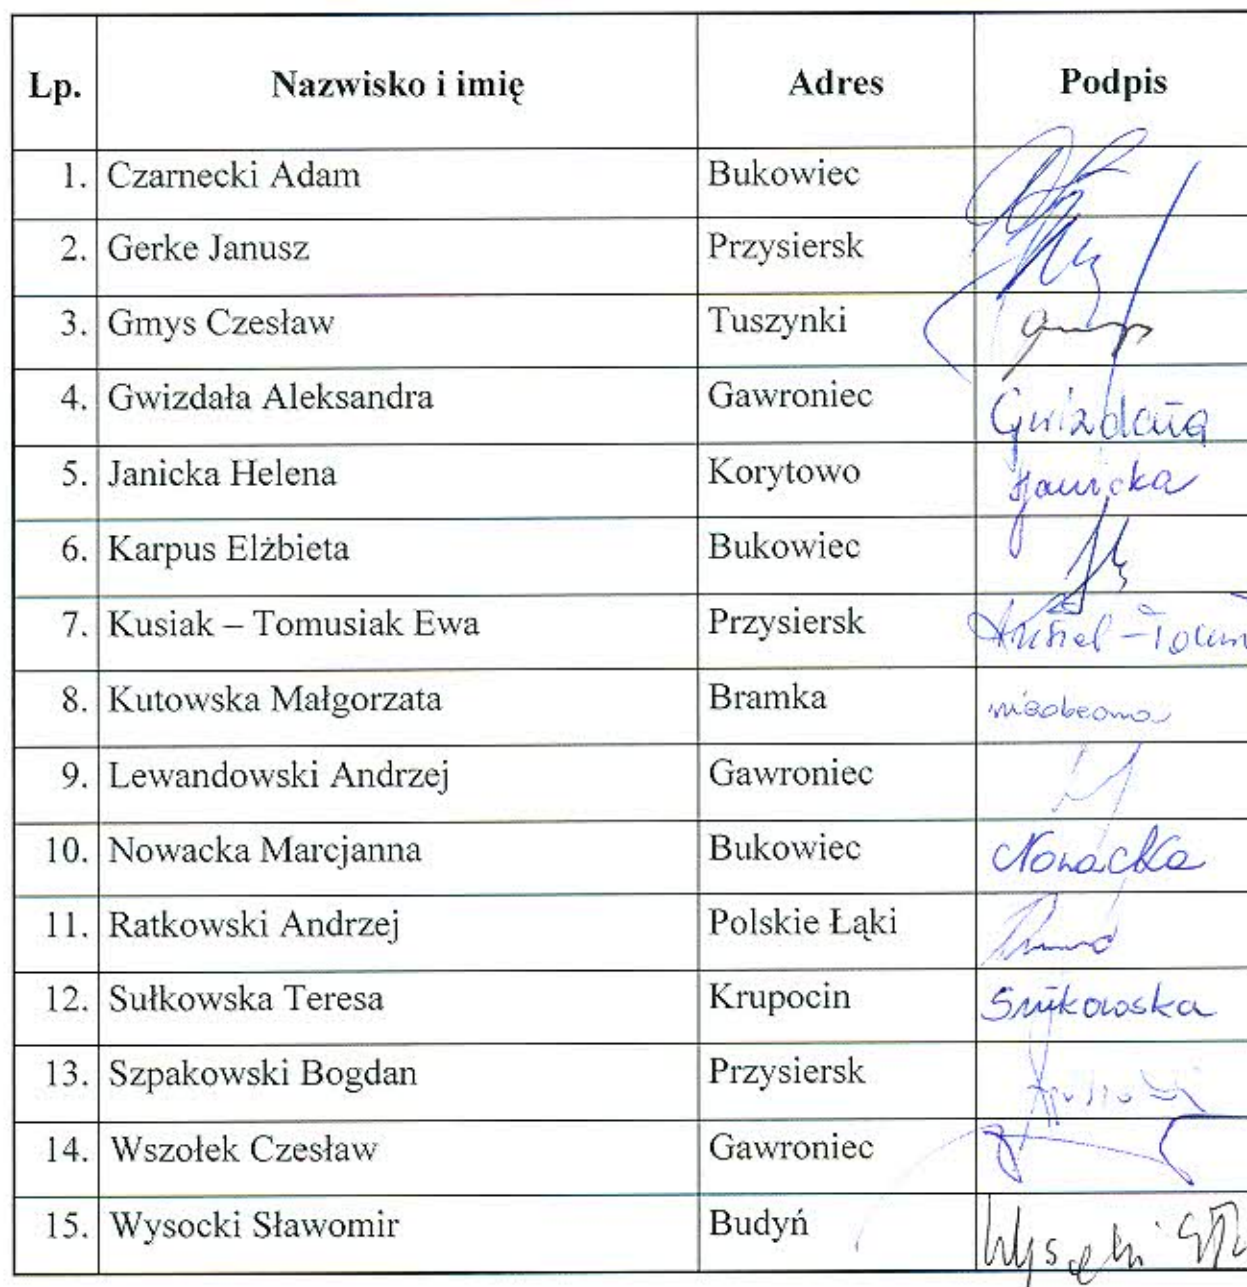 Lp. Nazwisko i imię Adres Podpis
1. Czarnecki Adam Bukowiec
2. Gerke Janusz Przysiersk
3. Gmys Czesław Tuszynki
4. Gwizdała Aleksandra Gawroniec Gwizdała
5. Janicka Helena Korytowo Janicka
6. Karpus Elżbieta Bukowiec
7. Kusiak – Tomusiak Ewa Przysiersk
8. Kutowska Małgorzata Bramka nieobecna
9. Lewandowski Andrzej Gawroniec
10. Nowacka Marcjanna Bukowiec Nowacka
11. Ratkowski Andrzej Polskie Łąki
12. Sułkowska Teresa Krupocin Sułkowska
13. Szpakowski Bogdan Przysiersk
14. Wszołek Czesław Gawroniec
15. Wysocki Sławomir Budyń Wysocki